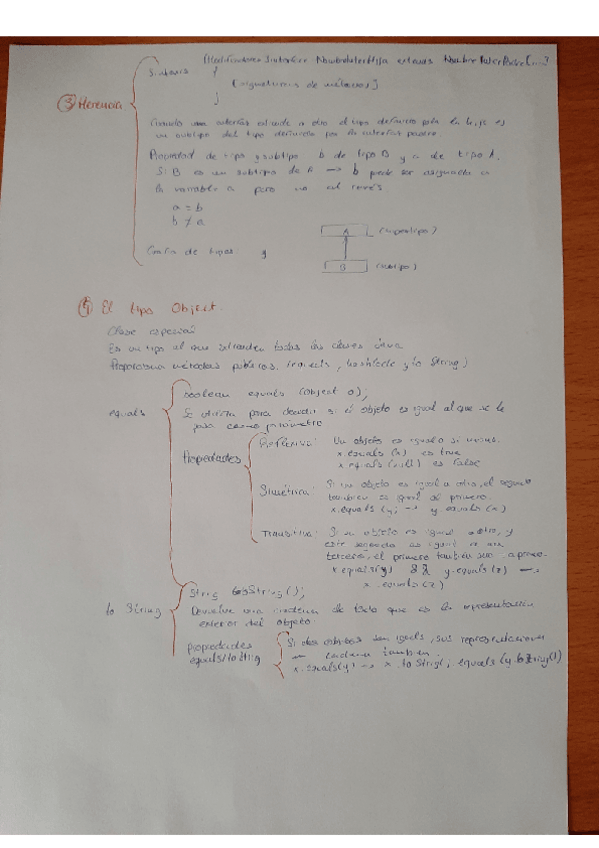 [Modificadores] interface NombreInterHija extends NombreInterPadre [,...]
Sintaxis {
[signaturas de métodos]
}
③ Herencia
Cuando una interfaz extiende a otra el tipo definido por la hija es
un subtipo del tipo definido por la interfaz padre.
Propiedad de tipo y subtipo b de tipo B y a de tipo A.
Si B es un subtipo de A → b puede ser asignada a
la variable a pero no al revés
a = b
b ≠ a
A (supertipo)
de tipos
B (subtipo)
④ El tipo Object.
Clase especial
Es un tipo al que extienden todas las clases Java
Proporciona métodos públicos. (equals, hashCode y to String)
boolean equals (Object o);
equals
Se utiliza para decidir si el objeto es igual al que se le
pasa como parámetro
Propiedades
Reflexiva: Un objeto es igual a si mismo.
x.equals (x) es true
x.equals (null) es false
Simétrica: Si un objeto es igual a otro, el segundo
también es igual al primero.
x.equals (y) → y equals (x)
Transitiva: Si un objeto es igual a otro, y
este segundo es igual a un
tercero, el primero también
x.equals(y) && y.equals(z) →
x.equals (z)
String toString();
to String
Devuelve una cadena de texto que es la representación
exterior del objeto
Propiedades
equals/toString
Si dos objetos son iguales, sus representaciones
en cadena también.
x.equals(y) → x.toString(). equals (y.toString())